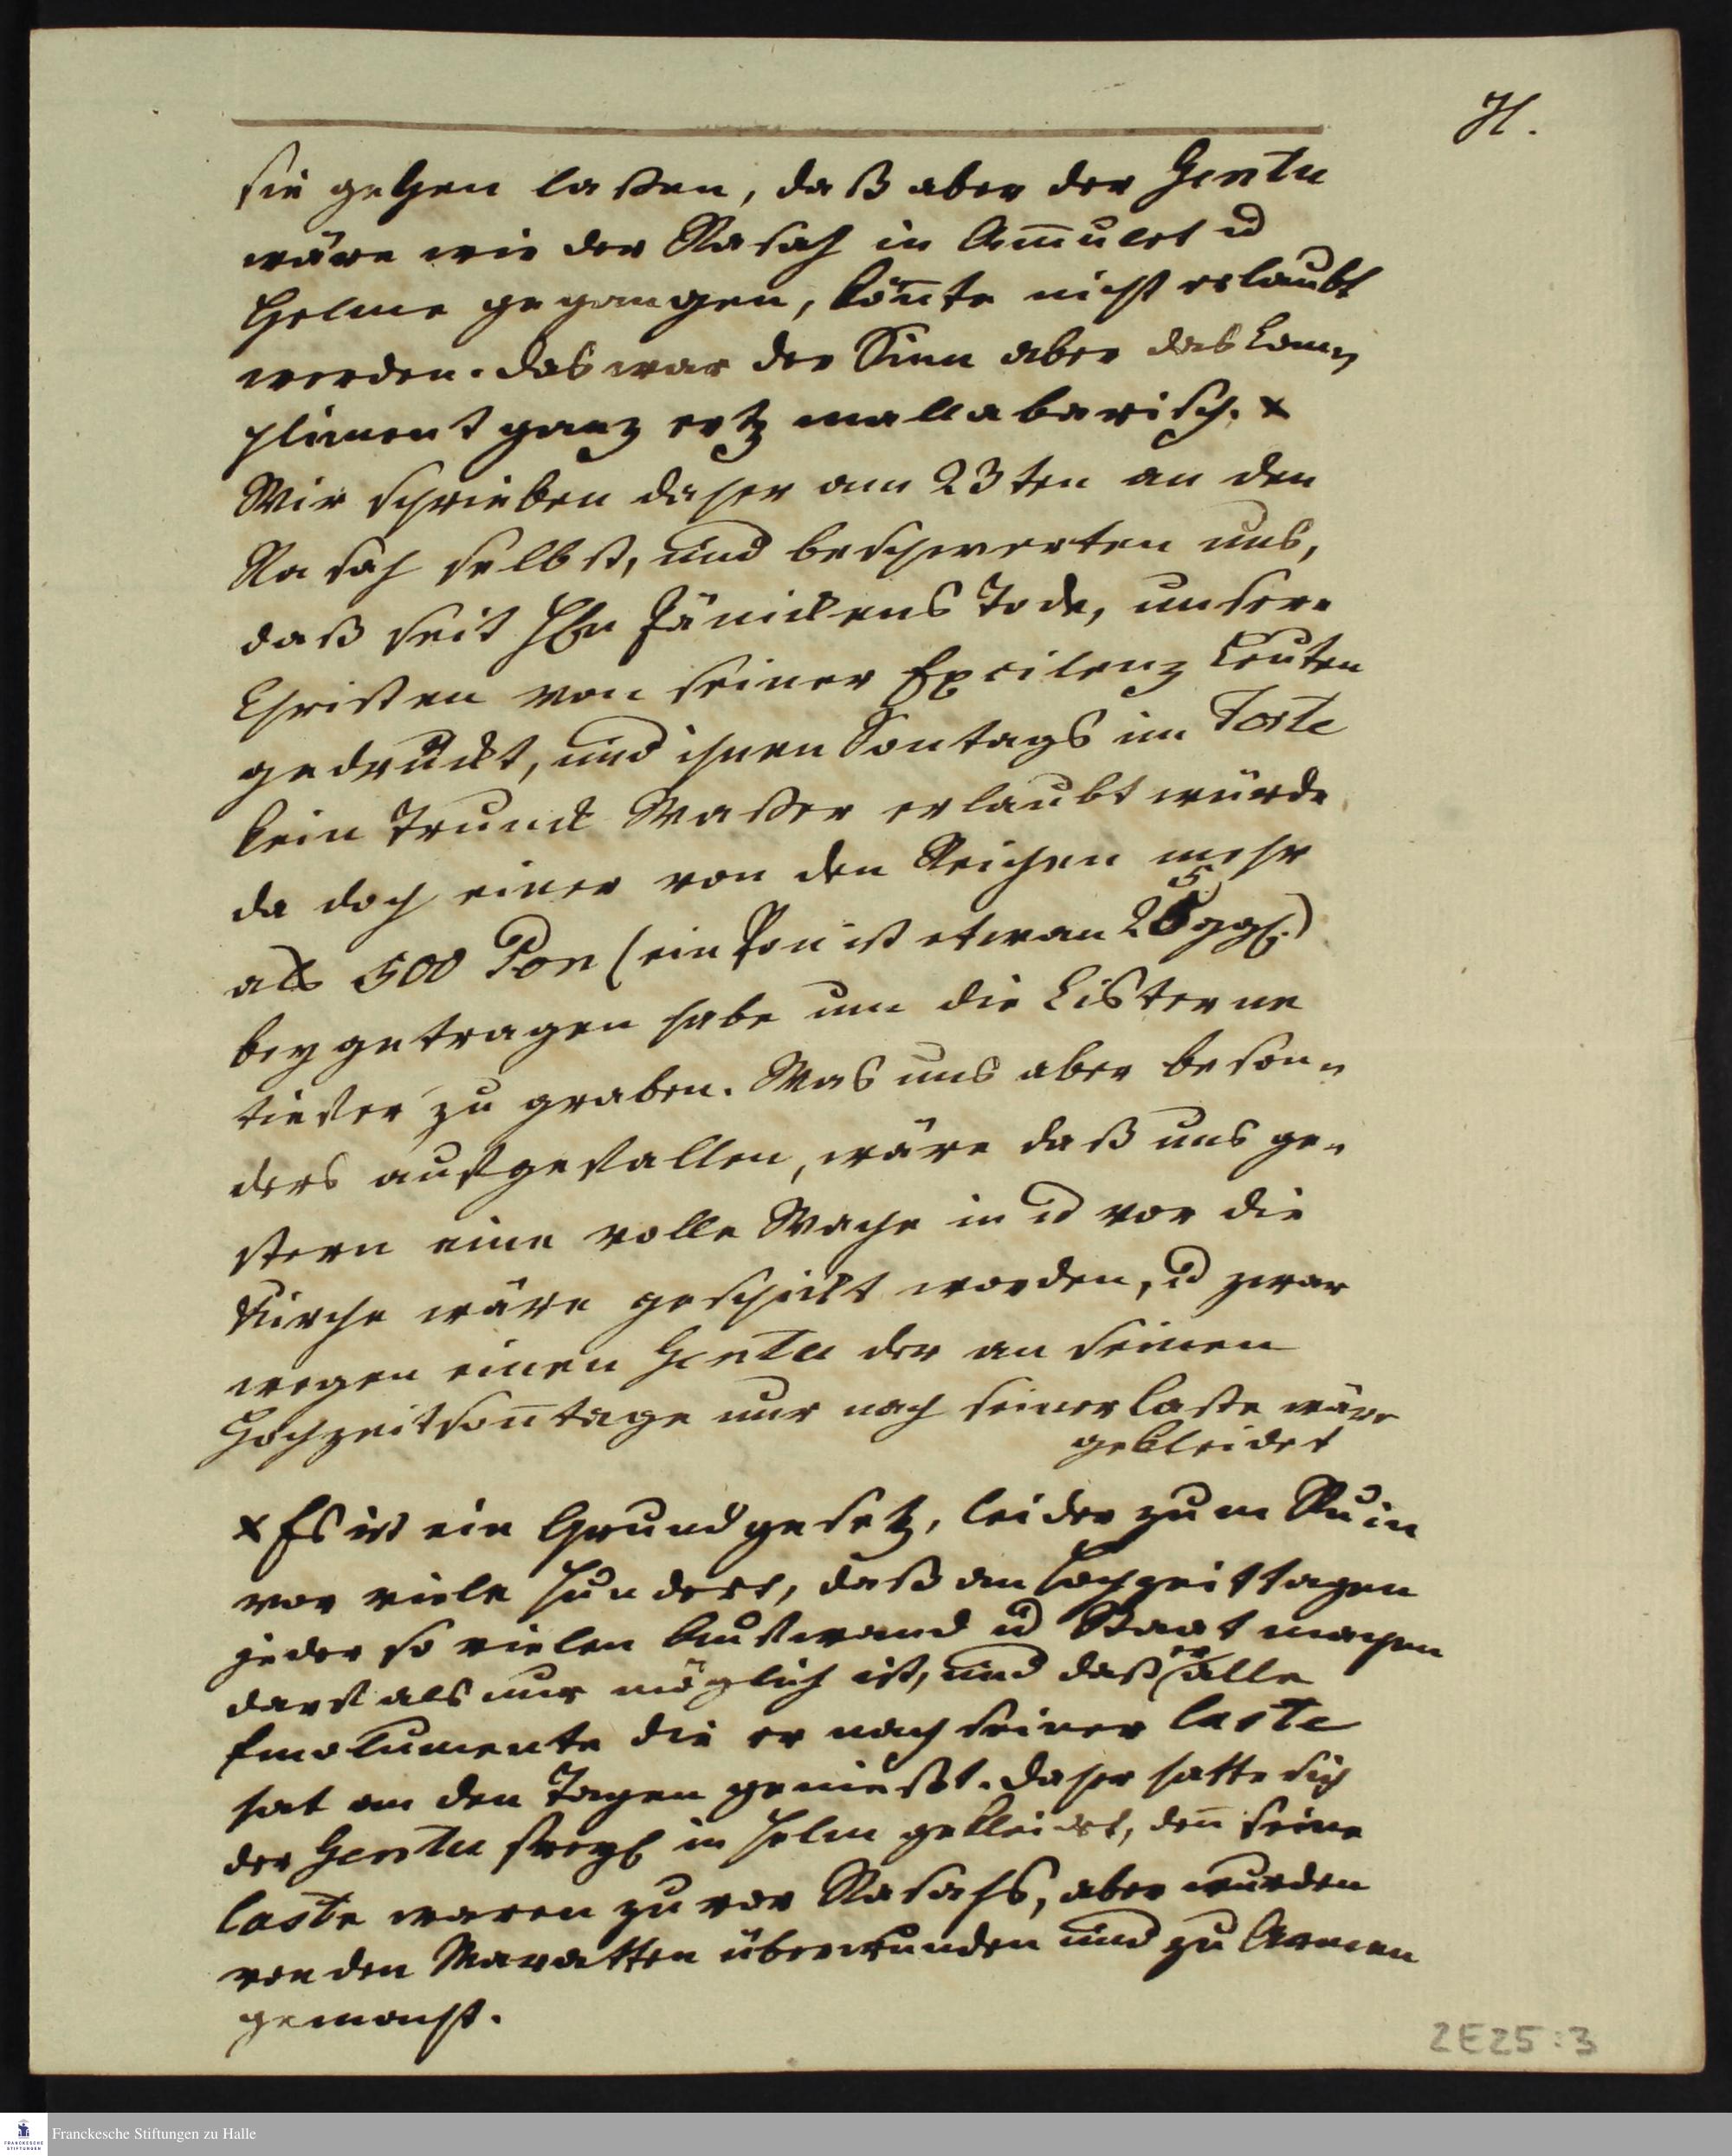 H.
sie gehen laßen, daß aber der Gentu
wäre wie der Rasah in Am̅ulet u
Helme gegangen, kön̅te nicht erlaubt
werden. das war der Sinn aber das Com„
pliment ganz ertz mallabarisch. x
Wir schrieben daher am 23ten an den
Rasah selbst, und beschwerten uns,
daß seit Hbn Jänickens Tode, unsere
Christen von seiner Excilenz Leuten
gedruckt, und ihnen Sontags im Forte
kein Trunck Waßer erlaubt würde
da doch einer von den Reichen mehr
als 500 Pon (ein Pon ist etwan 25 ggl.)
beygetragen habe um die Cisterne
tiefer zu graben. Was uns aber beson„
ders aufgefallen, wäre daß uns ge„
stern eine volle Wache in u vor die
Kirche wäre geschickt worden, u zwar
wegen einen Gentu der an seinen
Hochzeitson̅tage nur nach seiner Caste wäre
gekleidet
x Es ist ein Grundgesetz, leider zum Ruin
vor viele hundert, daß an Hochzeittagen
jeder so vielen Aufwand u Staat machen
darf als nur möglich ist, und daß er alle
Emolumente die er nach seiner Caste
hat an den Tagen genießt. daher hatte sich
der Gentu in Helm gekleidet, den̅ seine
Caste waren zuvor Rasahs, aber wurden
von den Maratten überwunden und zu Armen
gemacht.
2E25:3
FRANCKESCHE STIFTUNGEN
Franckesche Stiftungen zu Halle